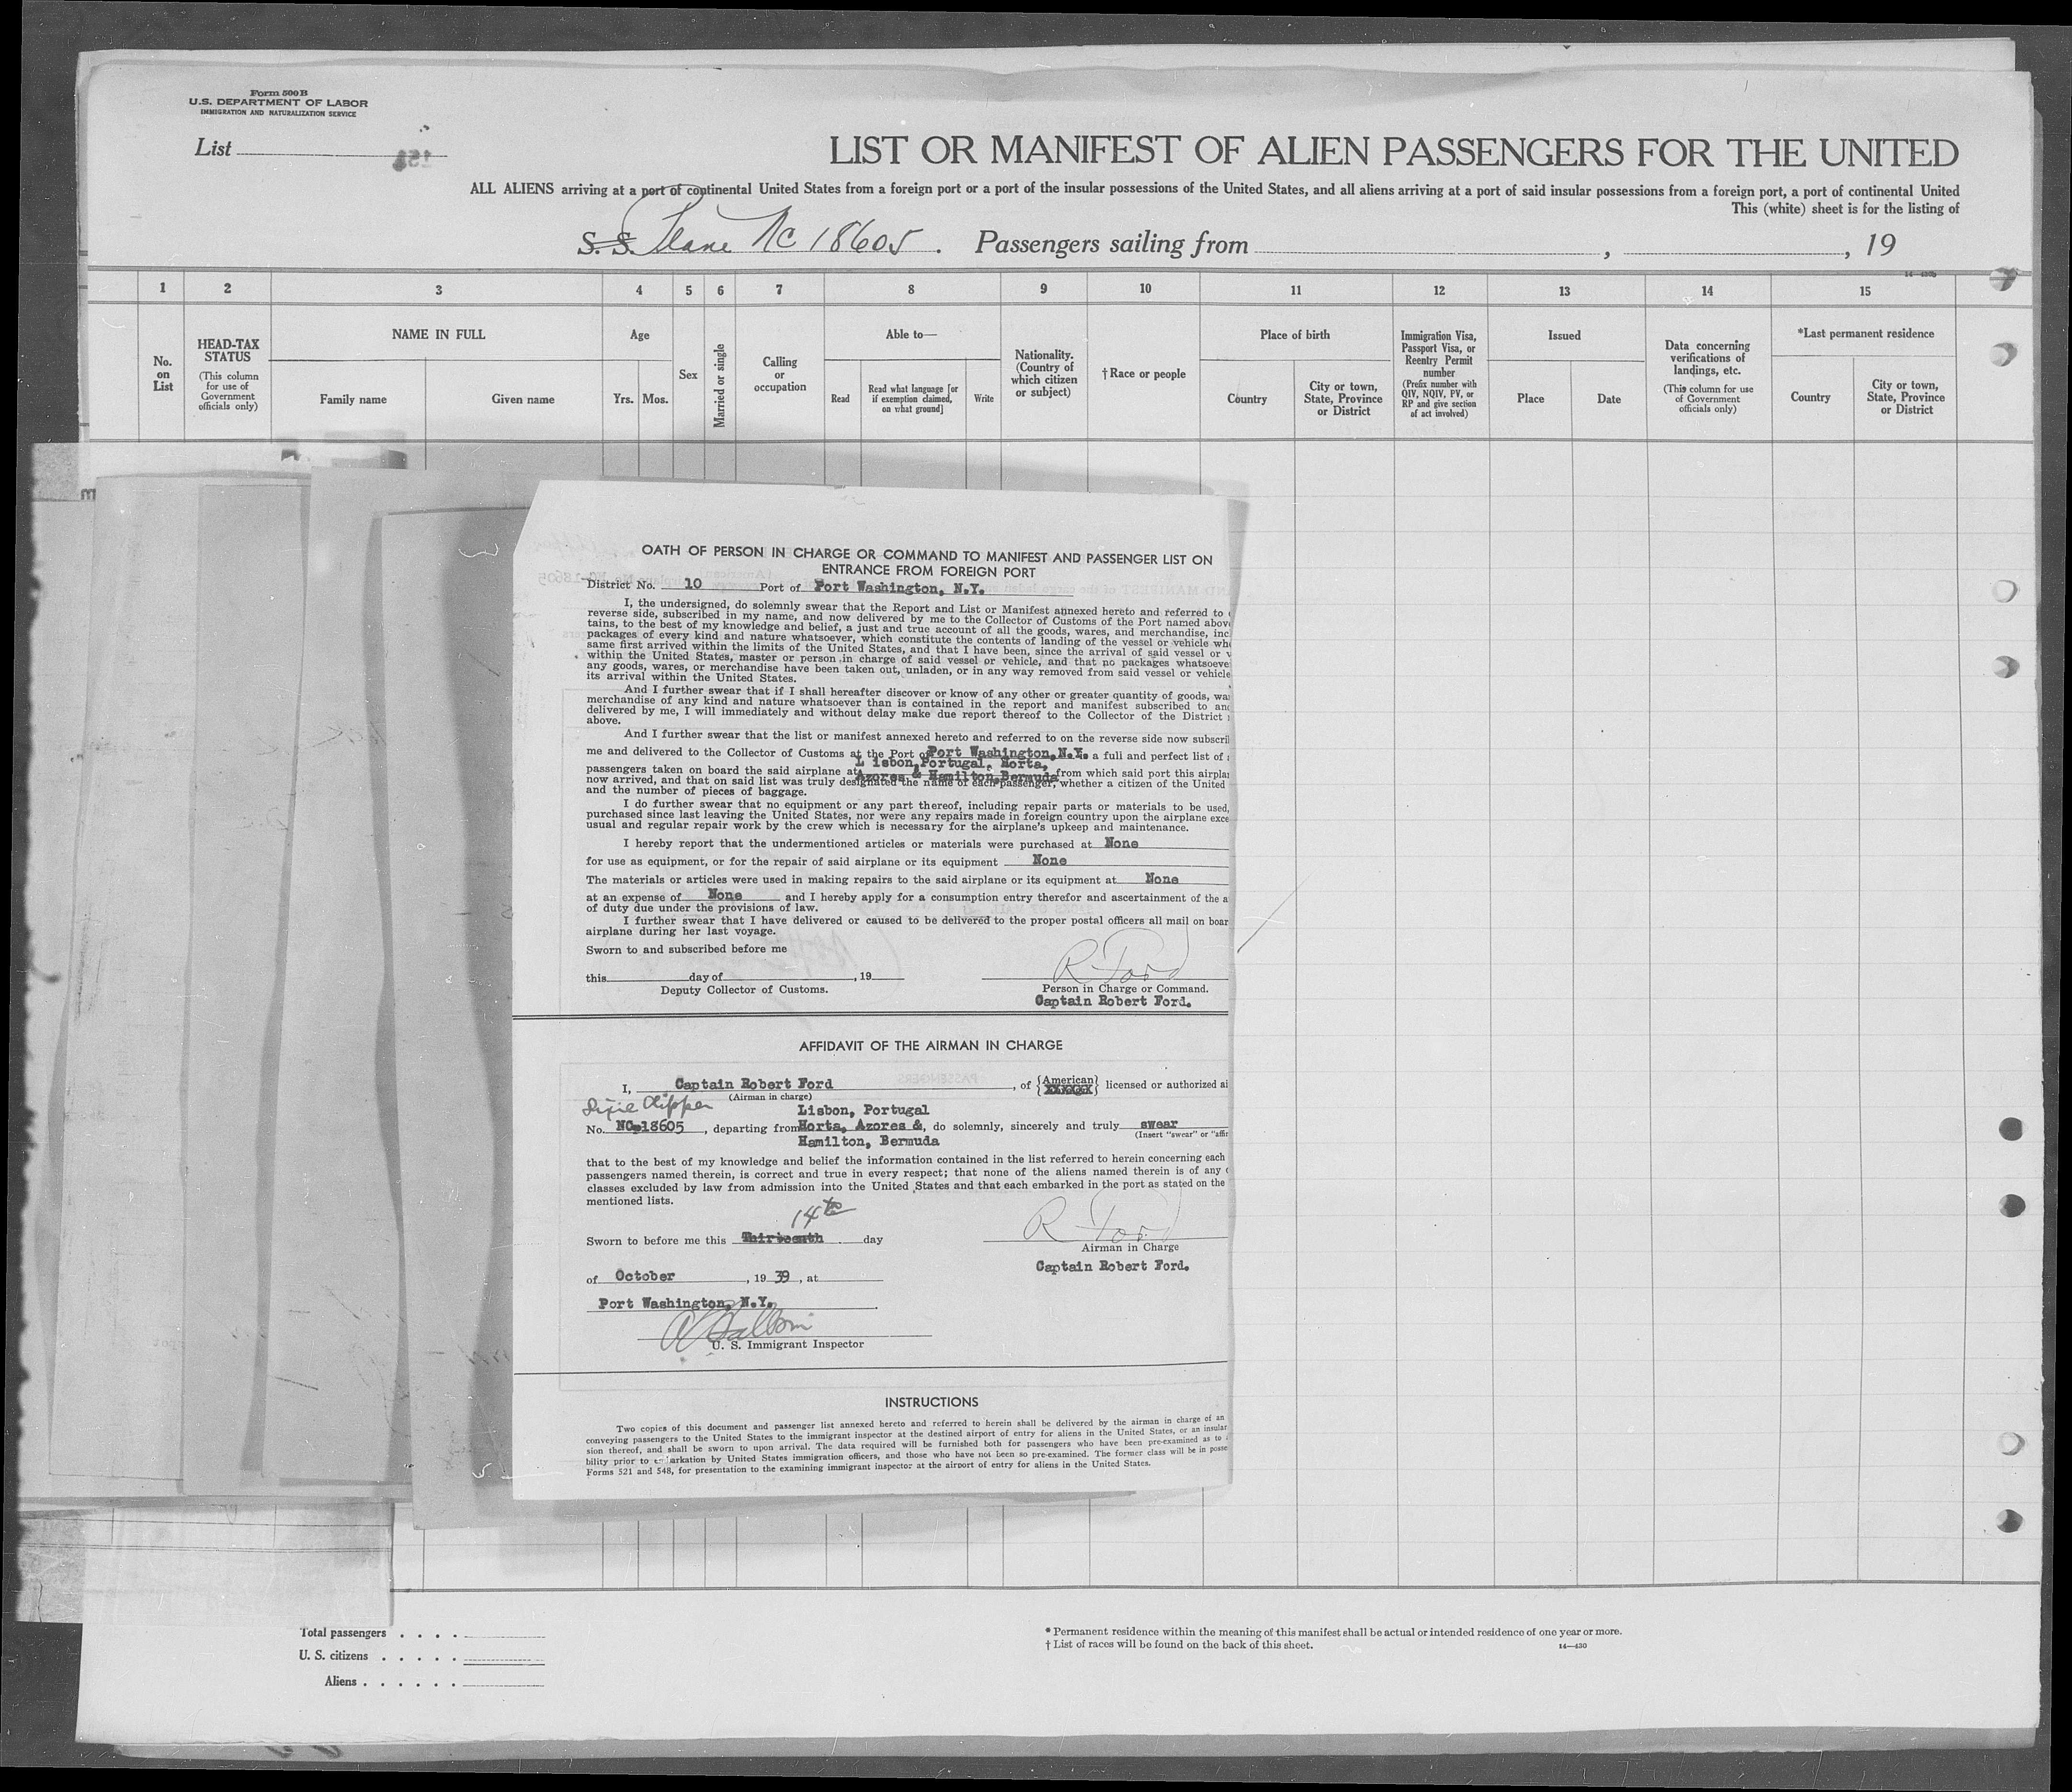 Form 500B
U.S. DEPARTMENT OF LABOR
IMMIGRATION AND NATURALIZATION SERVICE
List
LIST OR MANIFEST OF ALIEN PASSENGERS FOR THE UNITED
ALL ALIENS arriving at a port of continental United States from a foreign port or a port of the insular possessions of the United States, and all aliens arriving at a port of said insular possessions from a foreign port, a port of continental United
This (white) sheet is for the listing of
S. S. Plane NC 18605. Passengers sailing from , , 19
14—430b
1 2 3 4 5 6 7 8 9 10 11 12 13 14 15
No. on List
HEAD-TAX STATUS (This column for use of Government officials only)
NAME IN FULL
Family name Given name
Age
Yrs. Mos.
Sex
Married or single
Calling or occupation
Able to—
Read Read what language [or if exemption claimed, on what ground] Write
Nationality. (Country of which citizen or subject)
†Race or people
Place of birth
Country City or town, State, Province or District
Immigration Visa, Passport Visa, or Reentry Permit number (Prefix number with QIV, NQIV, PV, or RP and give section of act involved)
Issued
Place Date
Data concerning verifications of landings, etc. (This column for use of Government officials only)
*Last permanent residence
Country City or town, State, Province or District
OATH OF PERSON IN CHARGE OR COMMAND TO MANIFEST AND PASSENGER LIST ON
ENTRANCE FROM FOREIGN PORT
District No. 10 Port of Port Washington, N.Y.
I, the undersigned, do solemnly swear that the Report and List or Manifest annexed hereto and referred to
reverse side, subscribed in my name, and now delivered by me to the Collector of Customs of the Port named above
tains, to the best of my knowledge and belief, a just and true account of all the goods, wares, and merchandise, inc
packages of every kind and nature whatsoever, which constitute the contents of landing of the vessel or vehicle whe
same first arrived within the limits of the United States, and that I have been, since the arrival of said vessel or v
within the United States, master or person in charge of said vessel or vehicle, and that no packages whatsoeve
any goods, wares, or merchandise have been taken out, unladen, or in any way removed from said vessel or vehicle
its arrival within the United States.
And I further swear that if I shall hereafter discover or know of any other or greater quantity of goods, wa
merchandise of any kind and nature whatsoever than is contained in the report and manifest subscribed to and
delivered by me, I will immediately and without delay make due report thereof to the Collector of the District
above.
And I further swear that the list or manifest annexed hereto and referred to on the reverse side now subscri
me and delivered to the Collector of Customs at the Port of Port Washington, N.Y. a full and perfect list of
L isbon, Portugal, Horta,
passengers taken on board the said airplane at Azores & Hamilton, Bermuda from which said port this airpla
now arrived, and that on said list was truly designated the name of each passenger, whether a citizen of the United
and the number of pieces of baggage.
I do further swear that no equipment or any part thereof, including repair parts or materials to be used,
purchased since last leaving the United States, nor were any repairs made in foreign country upon the airplane exce
usual and regular repair work by the crew which is necessary for the airplane's upkeep and maintenance.
I hereby report that the undermentioned articles or materials were purchased at None
for use as equipment, or for the repair of said airplane or its equipment None
The materials or articles were used in making repairs to the said airplane or its equipment at None
at an expense of None and I hereby apply for a consumption entry therefor and ascertainment of the a
of duty due under the provisions of law.
I further swear that I have delivered or caused to be delivered to the proper postal officers all mail on boar
airplane during her last voyage.
Sworn to and subscribed before me
R Ford
this day of , 19
Deputy Collector of Customs. Person in Charge or Command.
Captain Robert Ford.
AFFIDAVIT OF THE AIRMAN IN CHARGE
I, Captain Robert Ford , of {American XXXXXX} licensed or authorized ai
(Airman in charge)
Dixie Clipper
Lisbon, Portugal
No. NC-18605 , departing from Horta, Azores &, do solemnly, sincerely and truly swear
Hamilton, Bermuda (Insert "swear" or "affir
that to the best of my knowledge and belief the information contained in the list referred to herein concerning each
passengers named therein, is correct and true in every respect; that none of the aliens named therein is of any
classes excluded by law from admission into the United States and that each embarked in the port as stated on the
mentioned lists.
14th
R Ford
Sworn to before me this Thirteenth day
Airman in Charge
Captain Robert Ford.
of October , 19 39 , at
Port Washington, N.Y.
U. S. Immigrant Inspector
INSTRUCTIONS
Two copies of this document and passenger list annexed hereto and referred to herein shall be delivered by the airman in charge of an
conveying passengers to the United States to the immigrant inspector at the destined airport of entry for aliens in the United States, or an insular
sion thereof, and shall be sworn to upon arrival. The data required will be furnished both for passengers who have been pre-examined as to
bility prior to embarkation by United States immigration officers, and those who have not been so pre-examined. The former class will be in posse
Forms 521 and 548, for presentation to the examining immigrant inspector at the airport of entry for aliens in the United States.
Total passengers . . . .
U. S. citizens . . . . .
Aliens . . . . . .
* Permanent residence within the meaning of this manifest shall be actual or intended residence of one year or more.
† List of races will be found on the back of this sheet. 14—430